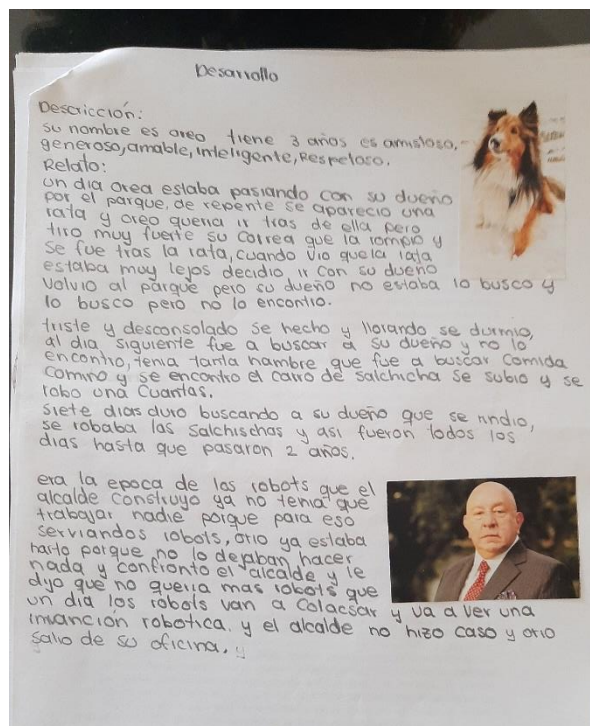 Desarrollo
Descricción:
su nombre es oreo tiene 3 años es amistoso,
generoso, amable, inteligente, Respetoso.
Relato:
un dia orea estaba pasiando con su dueño
por el parque, de repente se aparecio una
rata y oreo queria ir tras de ella pero
tiro muy fuerte su correa que la rompio y
se fue tras la rata, cuando vio que la rata
estaba muy lejos decidio ir con su dueño
volvio al parque pero su dueño no estaba lo busco y
lo busco pero no lo encontro.
triste y desconsolado se hecho y llorando se durmio,
al dia siguiente fue a buscar a su dueño y no lo
encontro, tenia tanta hambre que fue a buscar comida
camino y se encontro el carro de salchicha se subio y se
robo una cuantas.
siete dias duro buscando a su dueño que se rindio,
se robaba las salchischas y asi fueron todos los
dias hasta que pasaron 2 años.
era la epoca de los robots que el
alcalde construyo ya no tenia que
trabajar nadie porque para eso
serviandos robots, orio ya estaba
harto porque no lo dejaban hacer
nada y confronto el alcalde y le
dijo que no queria mas robots que
un dia los robots van a colacsar y va a ver una
invanción robotica. y el alcalde no hizo caso y orio
salio de su oficina, y